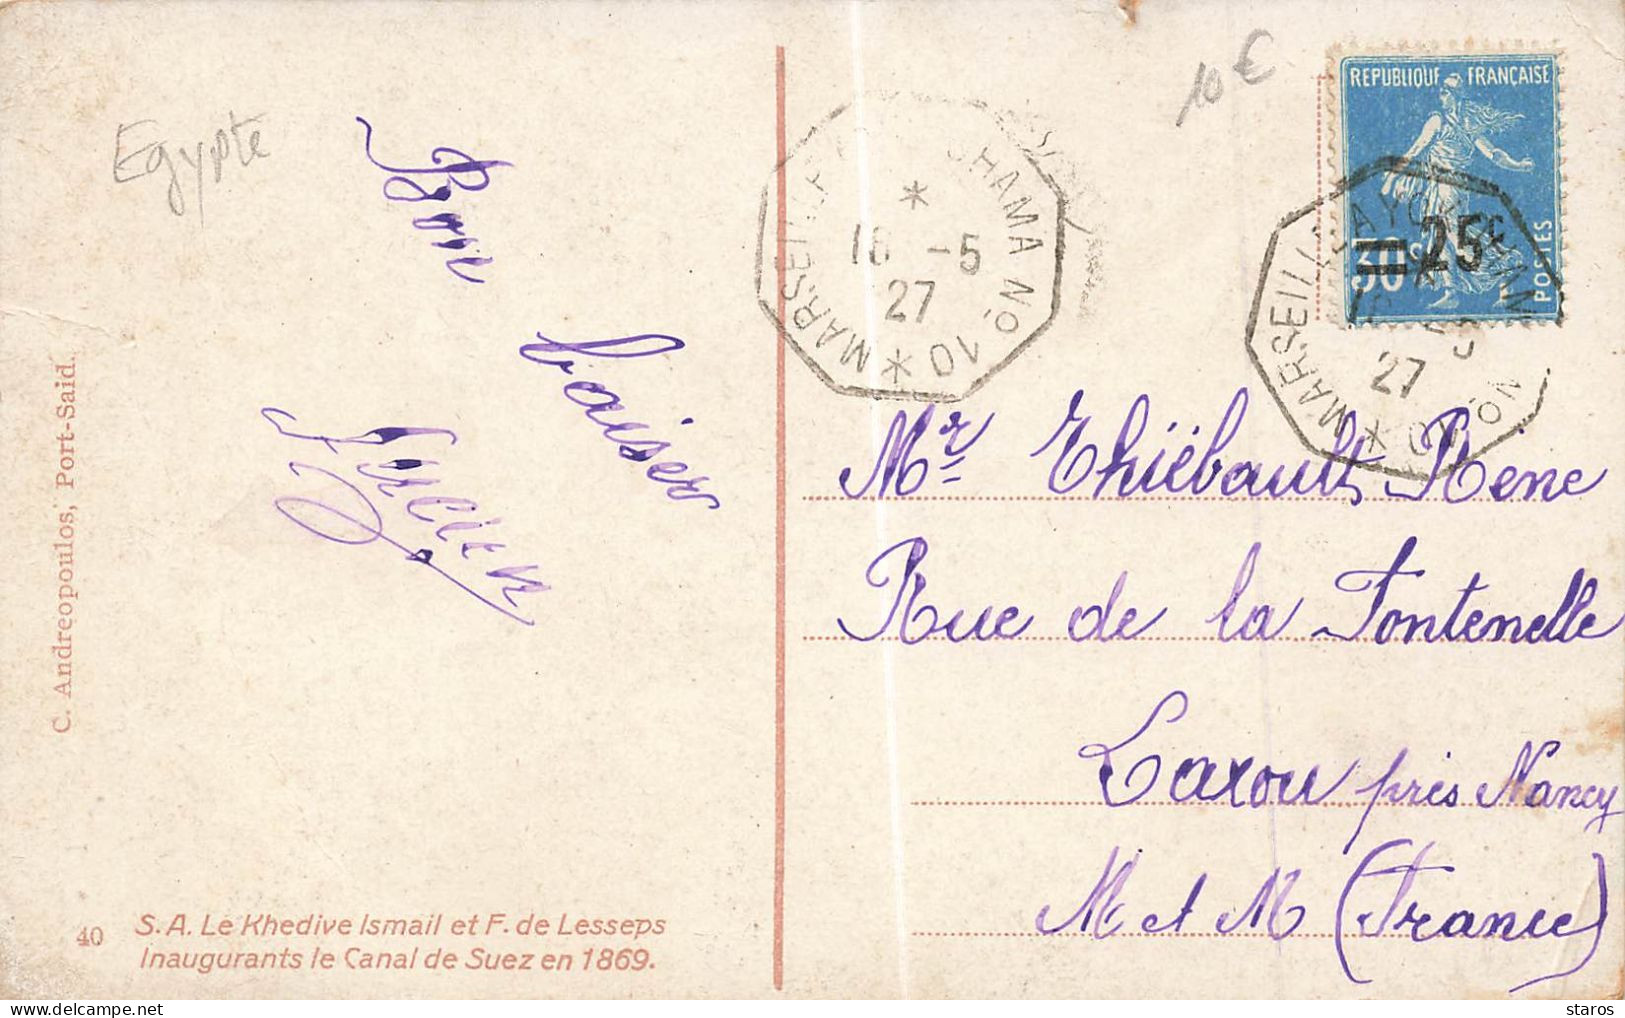 Egypte
10 €
Bon
baiser
Lucien
C. Andreopoulos, Port-Said.
40
S. A. Le Khedive Ismail et F. de Lesseps
Inaugurants le Canal de Suez en 1869.
MARSEILLE A YOKOHAMA No. 10
16 -5
27
REPUBLIQUE FRANÇAISE
POSTES
30c
25c
MARSEILLE A YOKOHAMA No. 10
27
Mr Thiëbault Rene
Rue de la Fontenelle
Laxou près Nancy
M et M (France)
staros